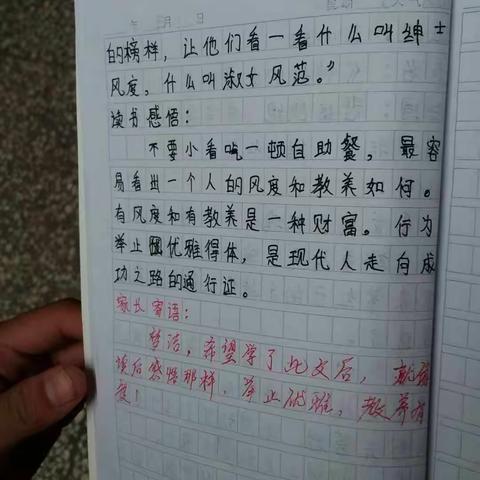 年 月 日 星期 天气
的榜样，让他们看一看什么叫绅士
风度，什么叫淑女风范。”
读书感悟：
不要小看吃一顿自助餐，最容
易看出一个人的风度和教养如何。
有风度和有教养是一种财富。行为
举止优雅得体，是现代人走向成
功之路的通行证。
家长寄语：
梦洁，希望学了此文后，就像
读后感悟那样，举止优雅，教养有
度！